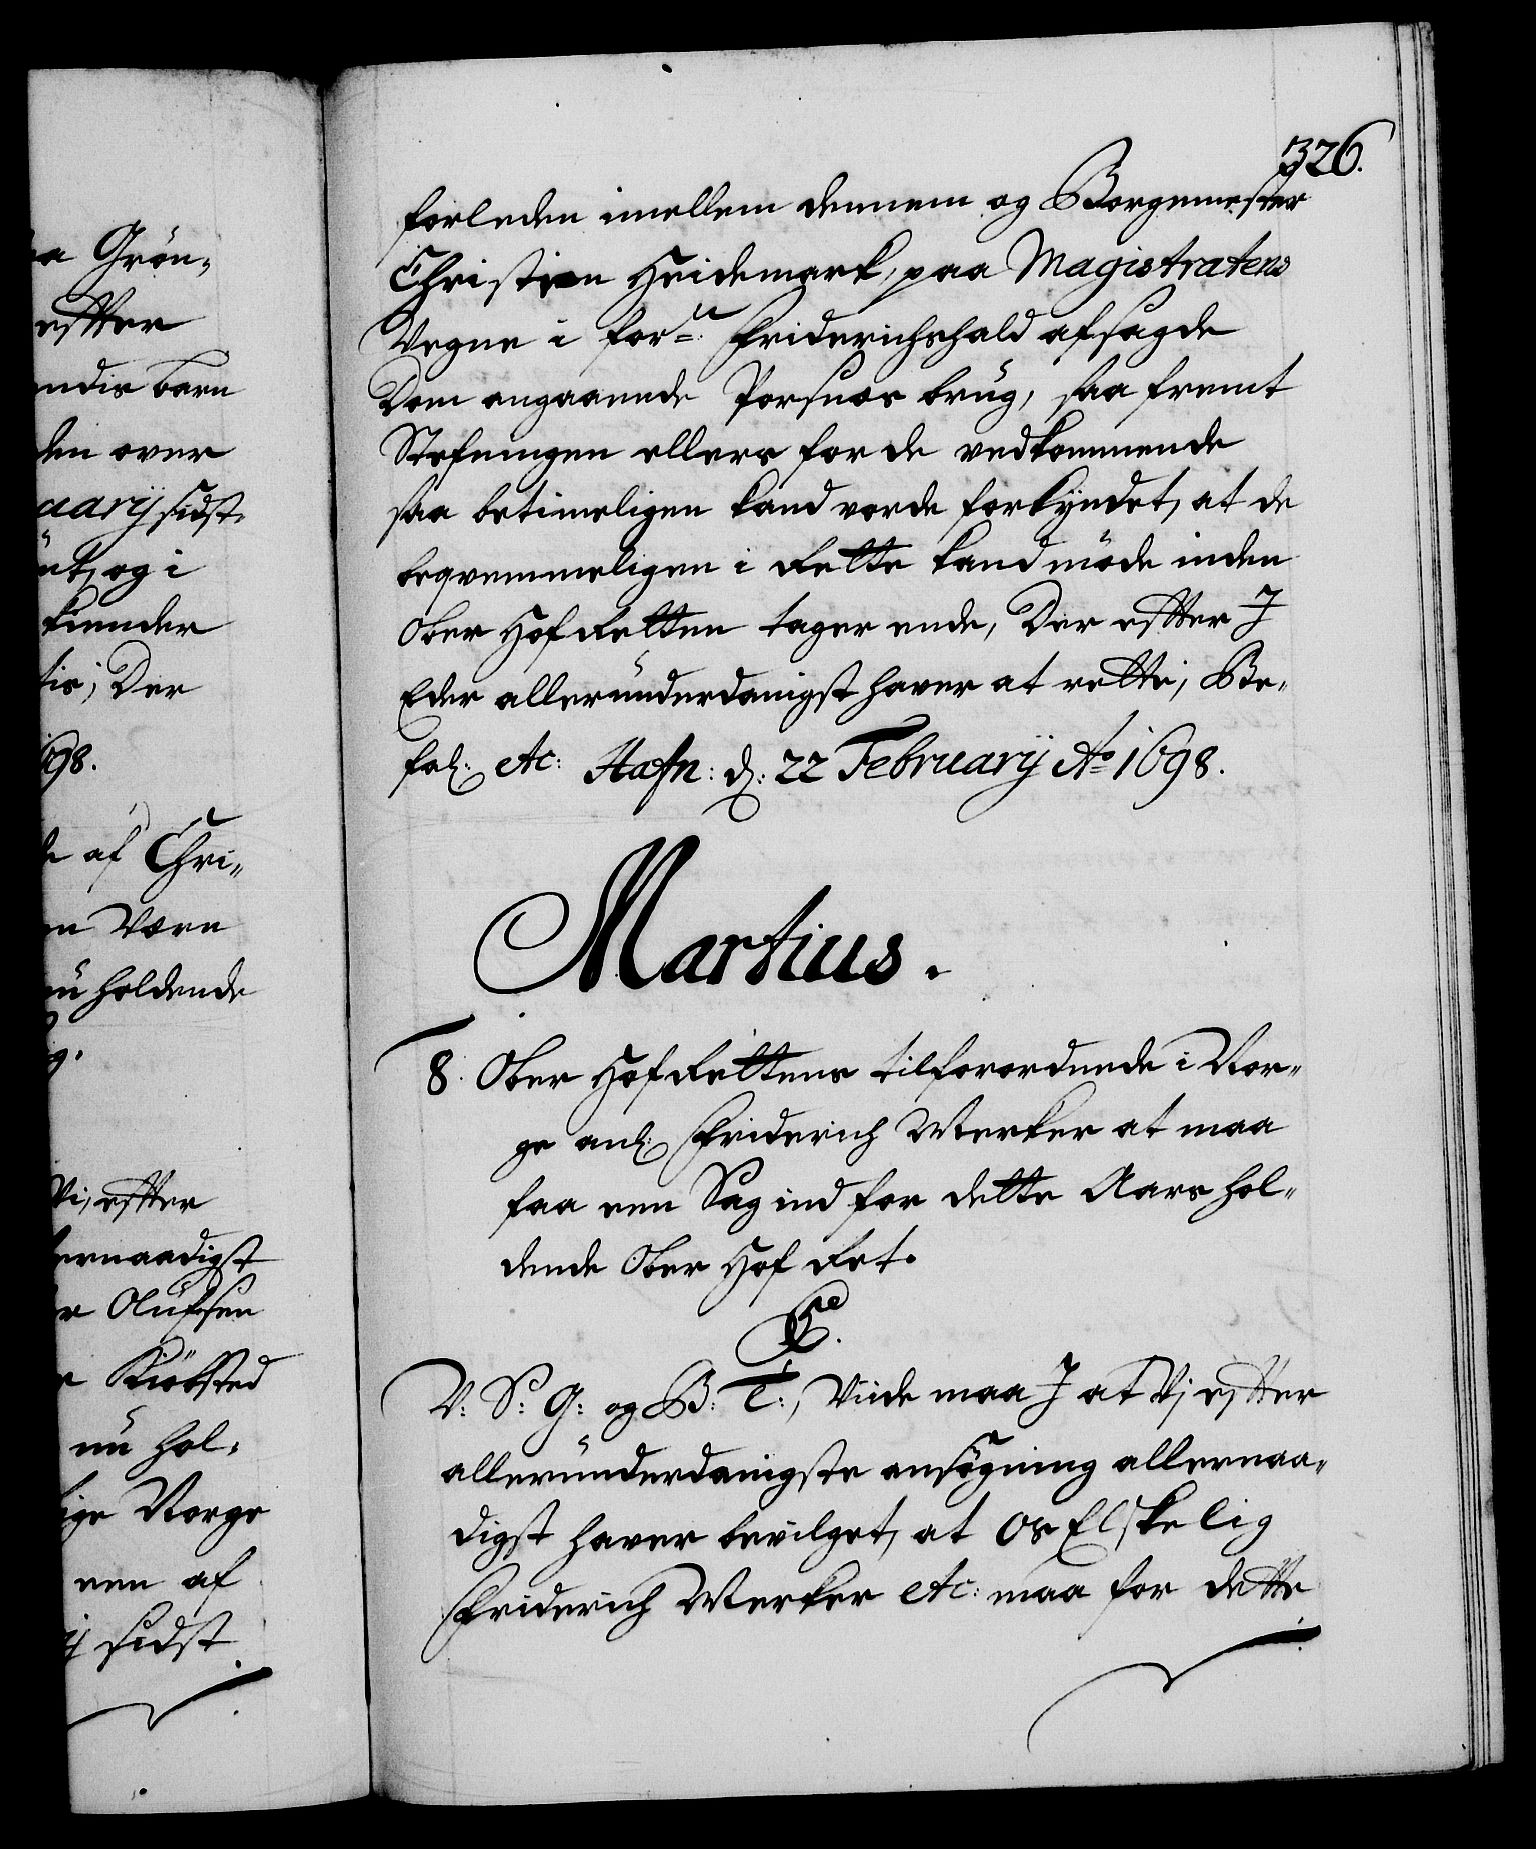 326.
forleden imellem dennem og Borgemester
Christian Heidemark, paa Magistratens
Vegne i for.ne Friderichshald afsagde
Dom angaaende Porsnes brug, saa fremt
Stefningen ellers for de vedkommende
saa betimeligen kand vorde forkyndet, at de
beqvemmeligen i Rette kand møde inden
Ober Hof Retten tager ende, Der effter I
Eder allerunderdanigst haver at rette, Be„
fal: etc: Hafn: d: 22 Februarij Ao 1698.
Martius.
8. Ober Hof Rettens tilforordnede i Nor„
ge anl: Friderich Werker at maa
faa een Sag ind for dette Aars hol„
dende Ober Hof Ret.
C5.
V: S: G: og B: T:, Viide maa I at Vi effter
allerunderdanigste ansøgning allernaa„
digst haver bevilget, at Os Elskelig
Friderich Werker etc: maa for dette
Grön„
effter
barn
den over
uarij sidst.
og i
Der
98.
af Chri„
Værn
holdende
Vi, effter
ernaadigst
Olufsen
Kiøbsted
nu hol„
ige Norge
een af
ij sidst